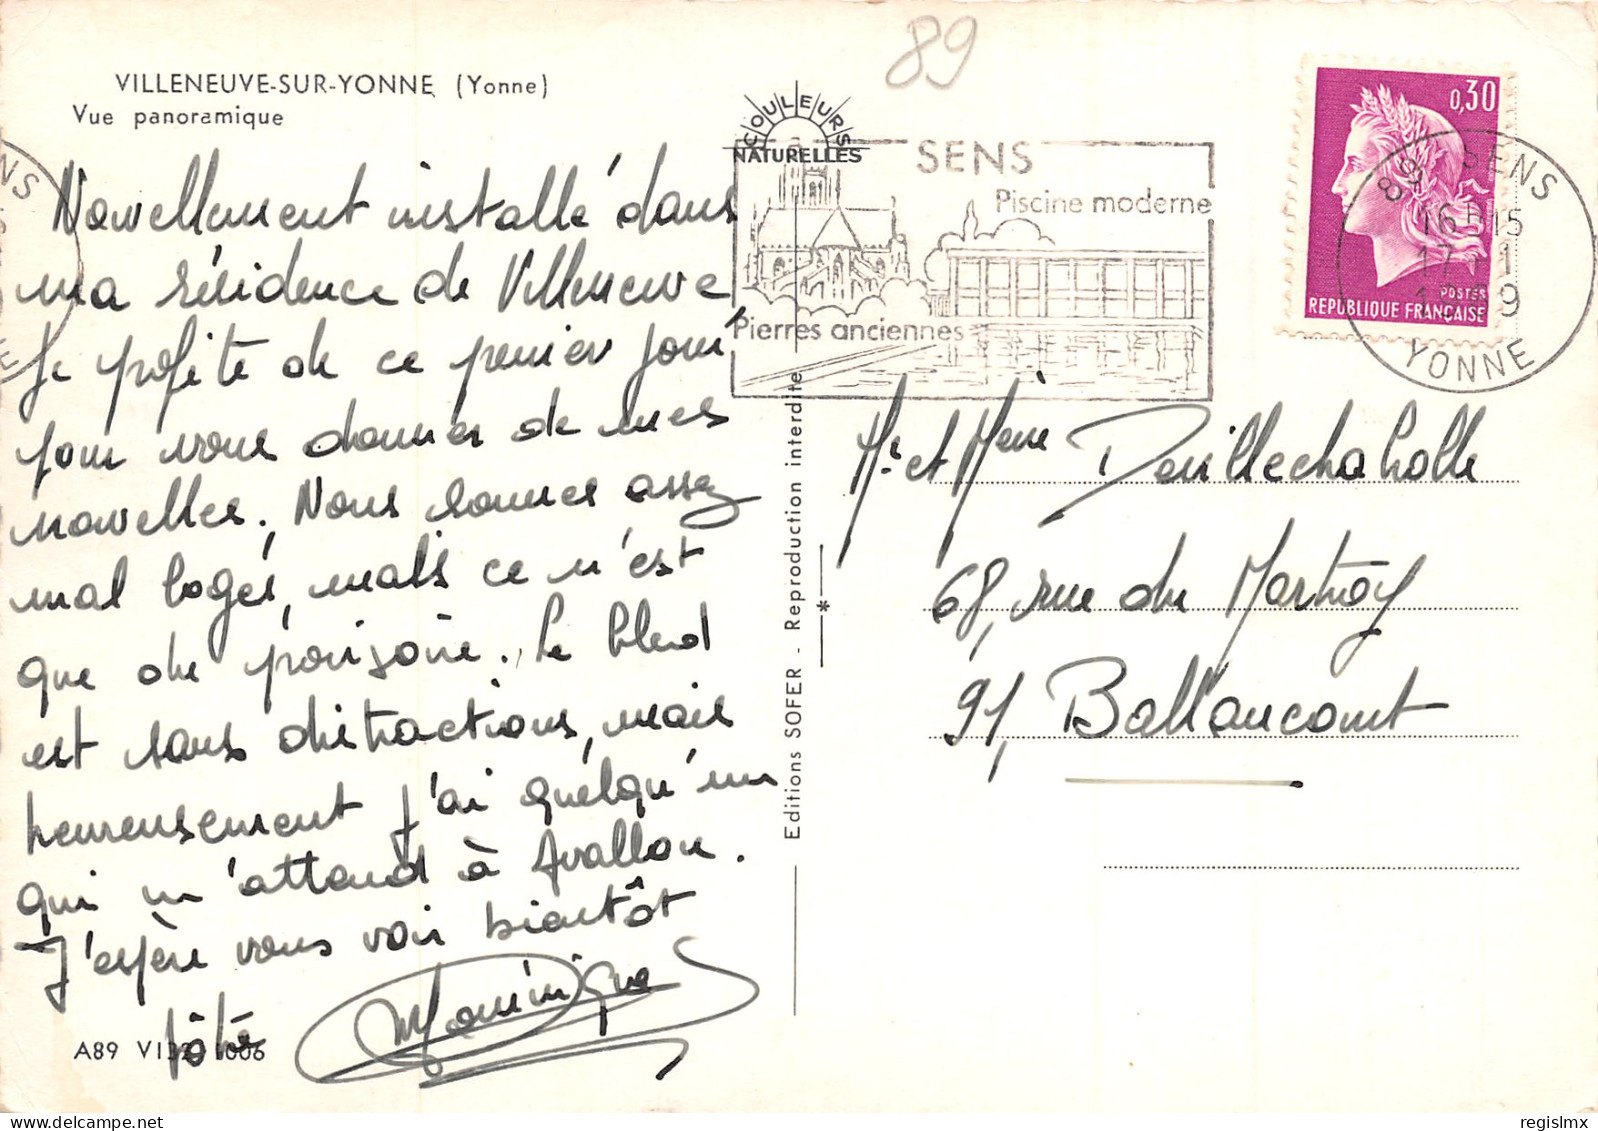 89
VILLENEUVE-SUR-YONNE (Yonne)
Vue panoramique
Nouvellement installé dans
ma résidence de Villeneuve
Je profite de ce premier jour
pour vous donner de mes
nouvelles. Nous sommes assez
mal logés, mais ce n'est
que du provisoire. Le bled
est sans distractions, mais
heureusement j'ai quelqu'un
qui m'attend à Avallon.
J'espère vous voir bientôt
Dominique
A89 V1 1006
COULEURS
NATURELLES
SENS
Piscine moderne
Pierres anciennes
Editions SOFER - Reproduction interdite
*
0,30
POSTES
REPUBLIQUE FRANÇAISE
89 SENS
16H15
17 - 1
YONNE
Mr et Mme Devillechabolle
68, rue du Martroy
91, Ballancourt
regislmx